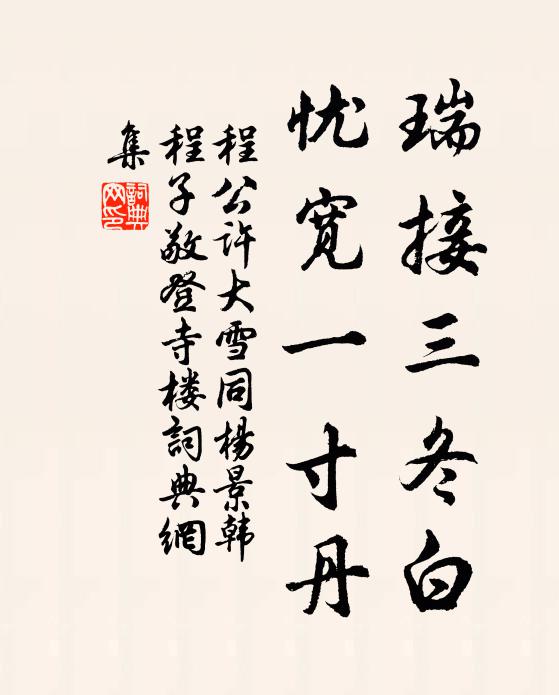 瑞接三冬白
忧宽一寸丹
程公许大雪同杨景韩
程子敬登寺楼词典網
集
詞典
网印